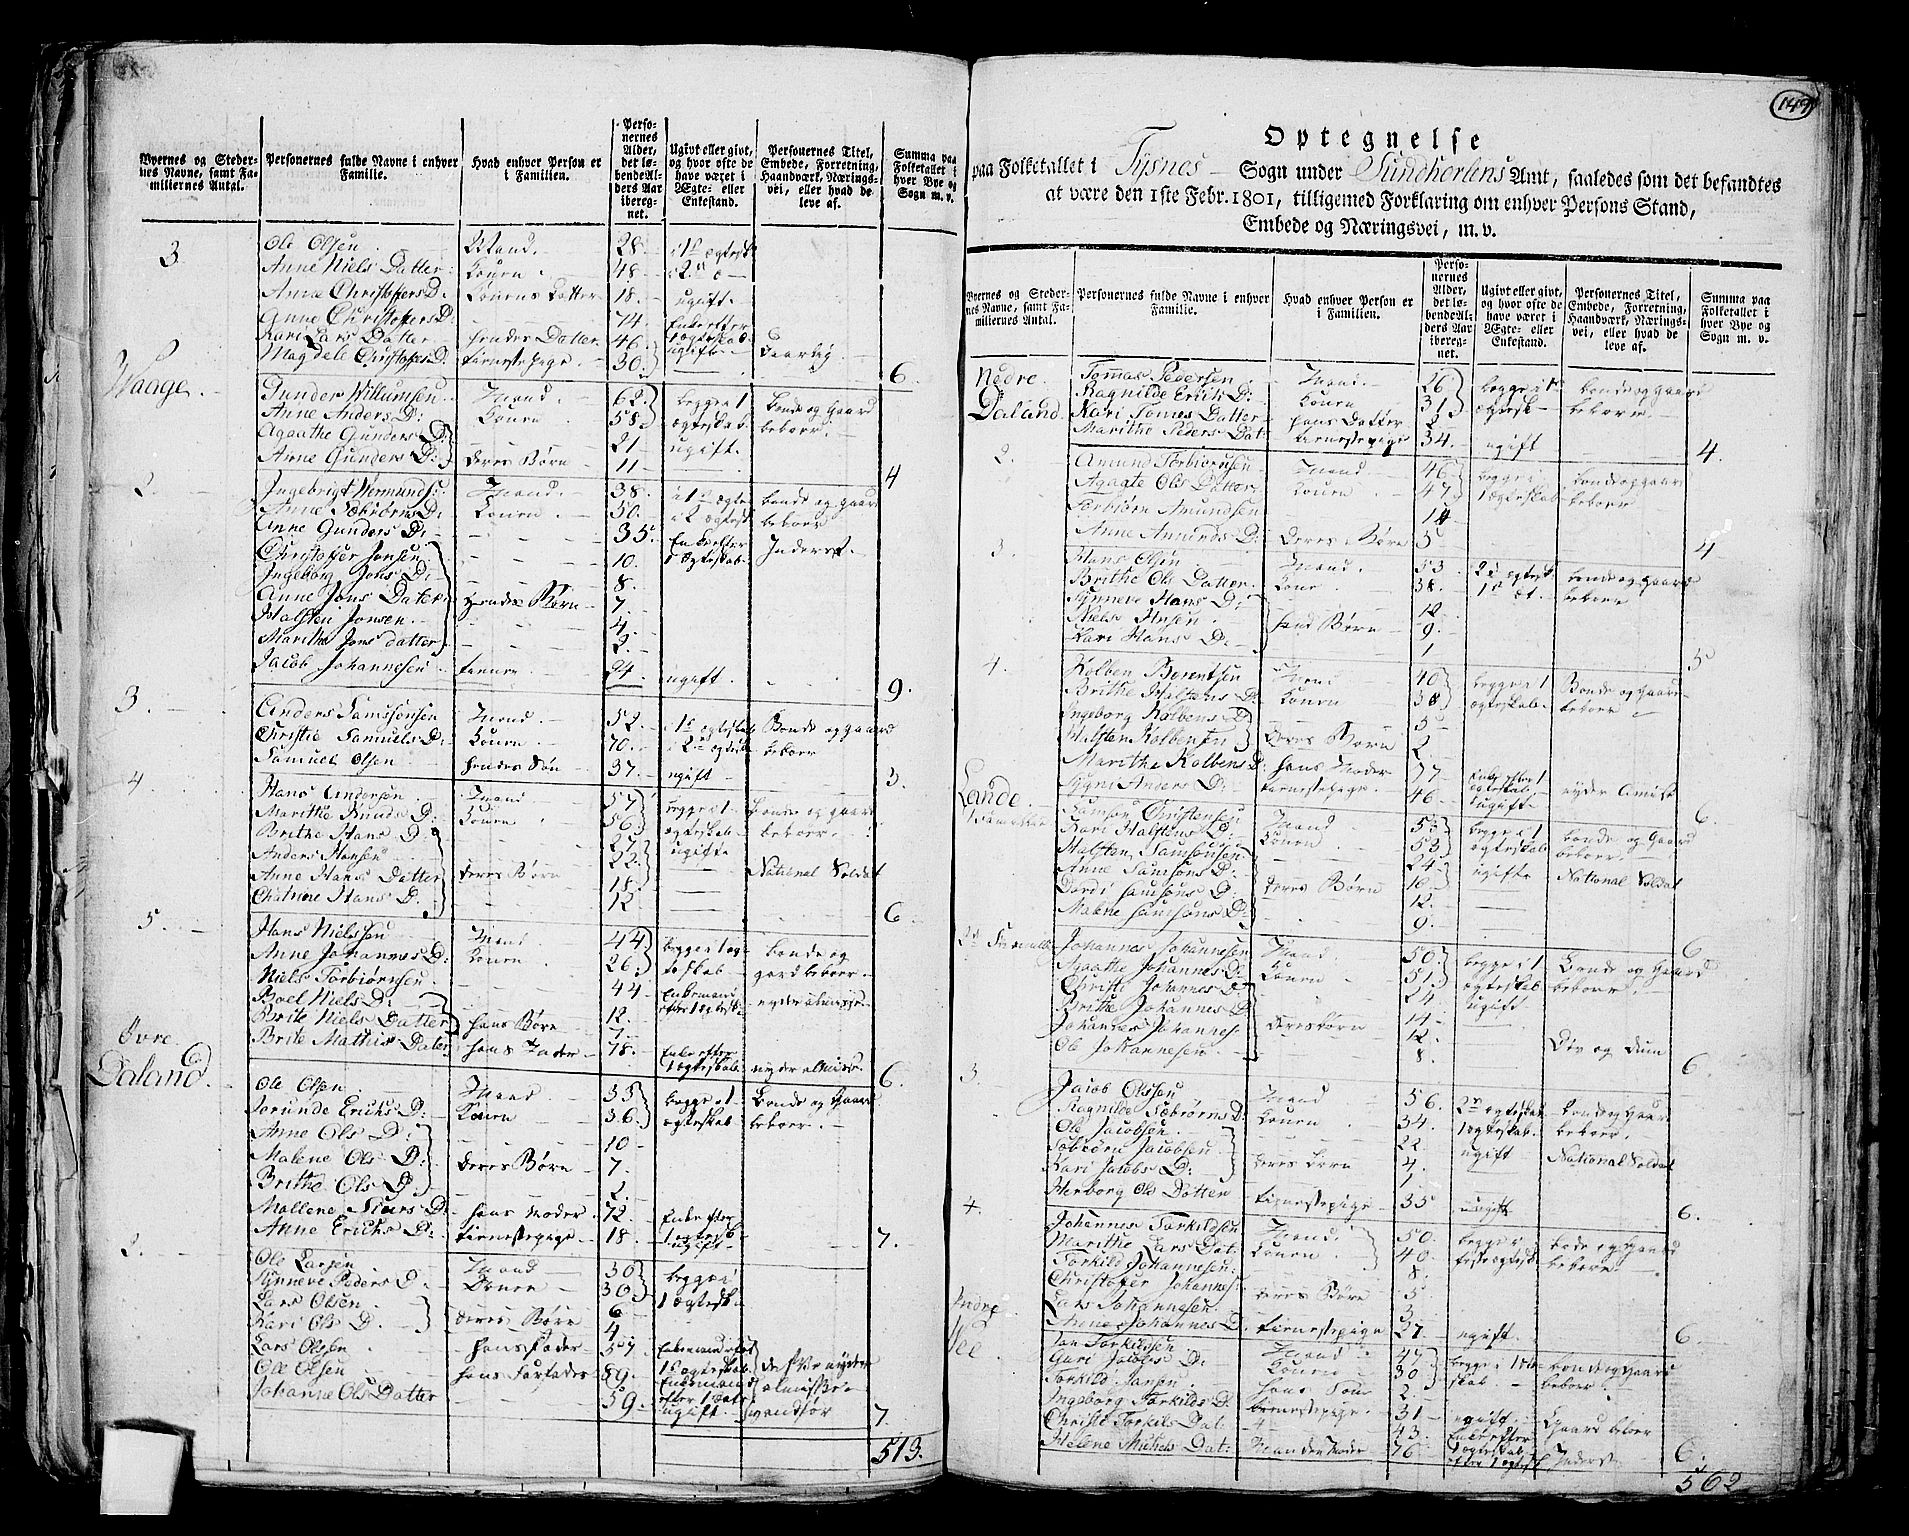 149
Byernes og Stedernes Navne, samt Familiernes Antal.
Personernes fulde Navne i enhver Familie.
Hvad enhver Person er i Familien.
Personernes Alder, det løbende Alders Aar iberegnet.
Ugivt eller givt, og hvor ofte de have været i Ægte- eller Enkestand.
Personernes Titel, Embede, Forretning, Haandværk, Næringsvei, eller hvad de leve af.
Summa paa Folketallet i hver Bye og Sogn m. v.
3 Ole Olsen Mand 28
Anne Niels Datter Konen 48
Anne Christoffers D: Konens Datter 18 ugift
Anne Christoffers D: 74 Enke efter
Kari Lars Datter hendes Datter 46 1 ægteskab
Magdele Christoffers D: tienestepige 30 ugift 6
Waage
Gunder Willumsen Mand 62 begge i 1 bonde og gaard
Anne Anders D: Konen 58 ægteskab beboer
Agaathe Gunders D: 21 ugift
Anne Gunders D: deres Børn 11 4
2 Ingebrigt Wermunds: Mand 38 i 1te ægte bonde og gaard
Anne Sæbiørns D: Konen 50 i 2 ægtesk beboer
Anne Gunders D: 35 Enke efter Inderst
Christoffer Jonsen 10 1 ægteskab
Ingeborg Jons D: 8
Anne Jons Dater hendes Børn 7
Halsten Jonsen 4
Marithe Jons datter 2
Jacob Johannesen tienere 24 ugift 9
3 Anders Samsonsen Mand 52 1 ægteskab Bonde og gaard
Christie Samuels D: Konen 70 i 2 ægteskab beboer
Samuel Olsen hendes Søn 37 ugift 3
4 Hans Andersen Mand 57 begge i 1 bonde og gaard
Marithe Knuds D: Konen 56 ægteskab beboer
Brithe Hans D: 27 ugifte
Anders Hansen 22 National Soldat
Anne Hans Datter deres Børn 18
Chatrine Hans D: 12 6
5 Hans Nielssen Mand 44 begge i 1 æg bonde og
Anne Johannes D: Konen 26 teskab gord beboer
Niels Torbiørnsen 44 Enkemand nyder almisse
Boel Niels D: 12 efter 1 ægtesk
Brite Niels Datter hans Børn 7
Brite Mathis Dater hans Moder 78 Enke efter 1 ægteskab nyder almisse 6
Øvre Daland
Ole Olsen Mand 35 begge i 1 Bonde og Gaard
Jorunde Erichs D: Konen 36 ægteskab beboer
Anne Ols D: 10
Malene Ols D: deres Børn 7
Brithe Ols D: 2
Mallene Siurs D: hans Moder 72 Enke efter
Anne Erichs D: tienestepige 18 1 ægtesk ugift 7
2 Ole Larsen Mand 30 begge i
Synneve Peders D. Konen 30 1 ægtesk
Lars Olsen 6
Kari Ols D. deres Børn 4
Lars Olsen hans Fader 57 Enkemand efter
Ole Olsen hans Farfader 89 1 ægteskab Enkemand
Johanne Ols Datter 59 efter 1 ægtes ugift vanfør 7
513
Optegnelse
paa Folketallet i Tysnes Sogn under Sundhorlens Amt, saaledes som det befandtes
at være den 1ste Febr. 1801, tilligemed Forklaring om enhver Persons Stand,
Embede og Næringsvei, m. v.
Byernes og Stedernes Navne, samt Familiernes Antal.
Personernes fulde Navne i enhver Familie.
Hvad enhver Person er i Familien.
Personernes Alder, det løbende Alders Aar iberegnet.
Ugivt eller givt, og hvor ofte de have været i Ægte- eller Enkestand.
Personernes Titel, Embede, Forretning, Haandværk, Næringsvei, eller hvad de leve af.
Summa paa Folketallet i hver Bye og Sogn m. v.
Nedre Daland
Tommas Pedersen Mand 26 begge i 1te bonde og gaard
Ragnilde Erichs D: Konen 31 ægtesk beboer
Kari Tomes Datter hans Datter 2
Marithe Peders Dat: tienestepige 34 ugift 4
2 Amund Torbiørnsen Mand 46 begge i bonde og gaard
Agaate Ols Datter Konen 47 1 ægteskab beboer
Torbiørn Amundsen 14
Anne Amunds D: deres Børn 5 4
3 Hans Olsen Mand 53 2d ægtesk bonde og gaard
Brithe Ols Datter Kone 38 1te æt. beboer
Synneve Hans D: 12
Niels Hansen hans Børn 9
Kari Hans D: 1 5
4 Kolben Berentsen Mand 40 begge i 1 Bonde og Gaard
Brithe Halstens D: Konen 38 ægteskab beboer
Ingeborg Kolbens D 5
Halsten Kolbensen deres Børn 2
Marithe Kolbens D: hans Moder 77 Enke efter 1 ægteskab nyder Almisse
Sygni Anders D: tienestepige 46 ugift 6
Lande
Samson Christensen Mand 55 begge i 1 bonde og Gaard
Kari Halstens D: Konen 53 ægteskab beboer
Halsten Samsonsen 24 ugifte National Soldat
Anne Samsons D: deres Børn 18
Dordi Samsons D: 12
Malene Samsons D: 9 6
Johannes Johannesen Mand 50 begge i 1 Bonde og Gaard
Agaathe Johannes D: Konen 51 ægteskab beboer
Christi Johannes D: 24 ugift
Brithe Johannes D: 14
Johannes Johannese deres børn 12
Ole Johannesen 8 Døv og Dum 6
3 Jacob Olssen Mand 56 2n ægteskab bonde og gaar
Ragnilde Sæbiørns D: Konen 34 1 ægteskab beboer
Ole Jacobsen 22 ugift National Soldat
Sæbiørn Jacobsen deres Børn 4
Kari Jacobs D: 1
Herborg Ols Datter tienestepige 35 ugift 6
4 Johannes Torkildsen Mand 50 begge i bonde og gaard
Marithe Lars Dat. Konen 40 første ægtesk beboer
Torkild Johannesen 8
Christoffer Johannes: deres Børn 5
Lars Johannesen 3
Anne Johannes D. tienestepige 27 ugift 6
Indre Vee
Jan Torkildsen Mand 47 begge i 1 ægte bonde og gaard
Guri Jacobs D: Konen 30 skab beboer
Torkild Jansen hans Søn 2
Ingeborg Torkilds D. tienestepige 31 ugift Gaard beboer
Christi Torkils Dat. 43 Enke efter
Helene Michels Dat: Mandens Moder 76 1 ægteskab Inderst 6
562